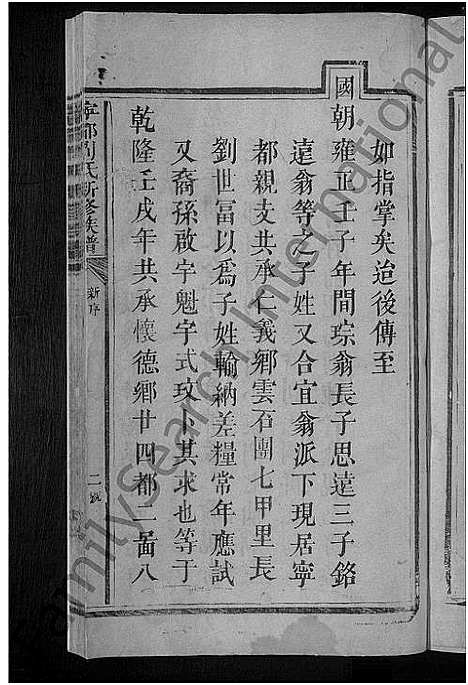 如指掌矣迨後傳至
國朝雍正壬子年間琮翁長子思遠三子銘
遠翁等之子姓又合宜翁派下現居寧
都親支共承仁義鄉雲石團七甲里長
劉世冨以爲子姓輸納差糧常年應試
又裔孫啟宇魁宇式玟卜其求也等于
乾隆壬戌年共承懷德鄉廿四都二啚八
寧都劉氏新修族譜
新序
二號
FamilySearch International